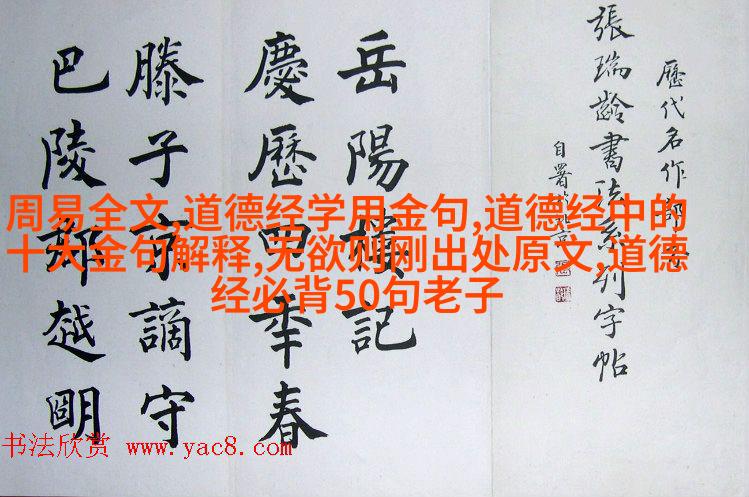 周易全文,道德经学用金句,道德经中的
十大金句解释,无欲则刚出处原文,道德
经必背50句老子
歷代名作
張瑞齡書法系列字帖
自署
岳陽樓記
慶歷四秊春
滕子京謫守
巴陵郡越朙
书法欣赏 www.yac8.com